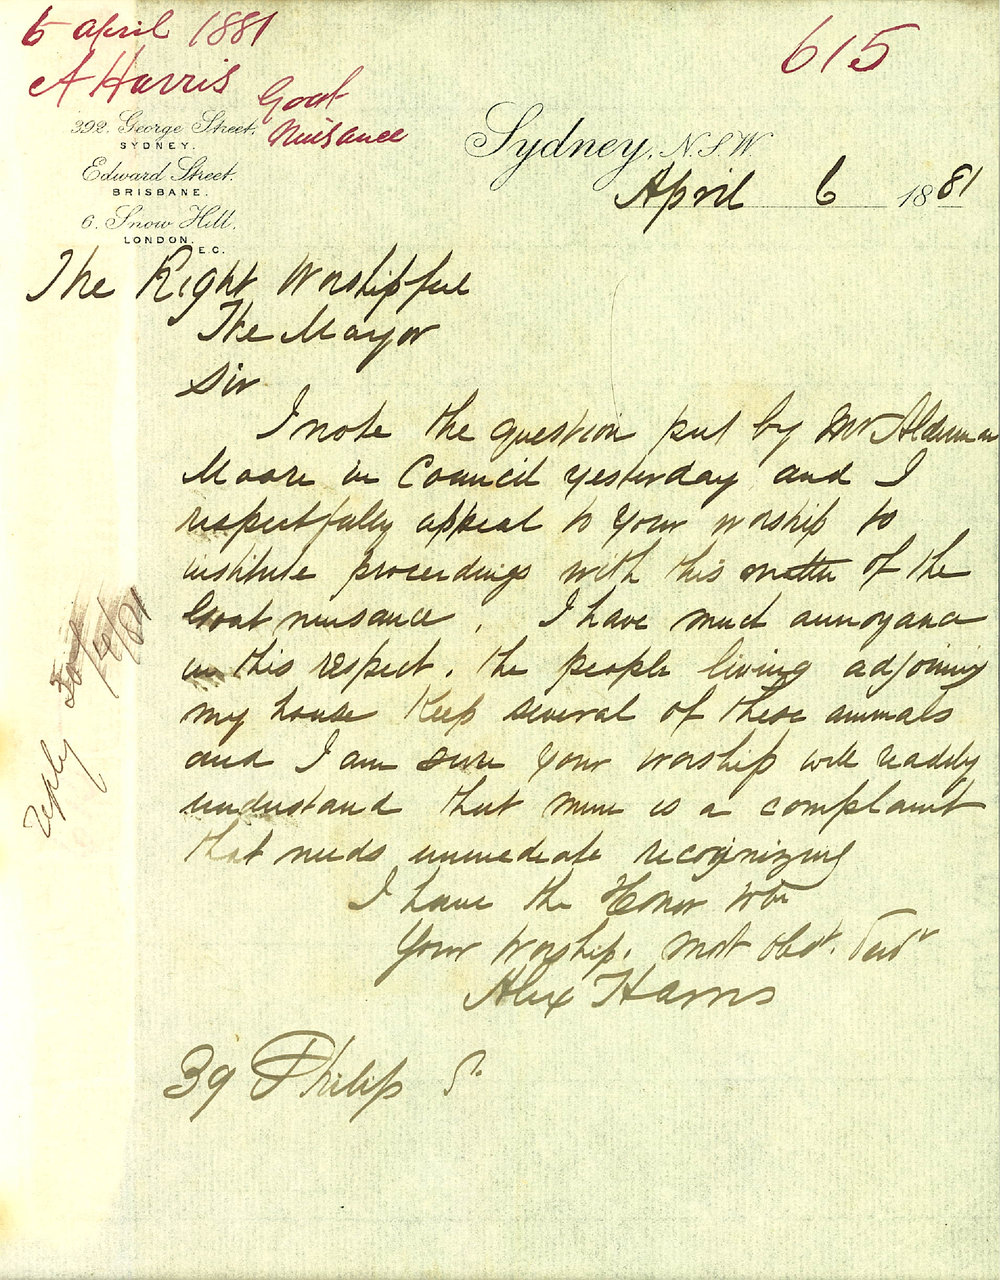 6 april 1881
615
A Harris
Goat
Nuisance
392. George Street,
SYDNEY.
Edward Street.
BRISBANE.
6. Snow Hill.
LONDON.
E.C.
Sydney, N.S.W.
April 6 1881
The Right Worshipful
The Mayor
Sir
I note the question put by Mr Alderman
Moore in Council yesterday and I
respectfully appeal to your worship to
institute proceedings with this matter of the
Goat nuisance. I have much annoyance
in this respect. the people living adjoining
my house keep several of these animals
and I am sure your worship will readily
understand that mine is a complaint
that needs immediate recognizing
I have the Honor to be
Your Worship. most obdt. Servt
Alex Harris
39 Philip St.
reply /4/81